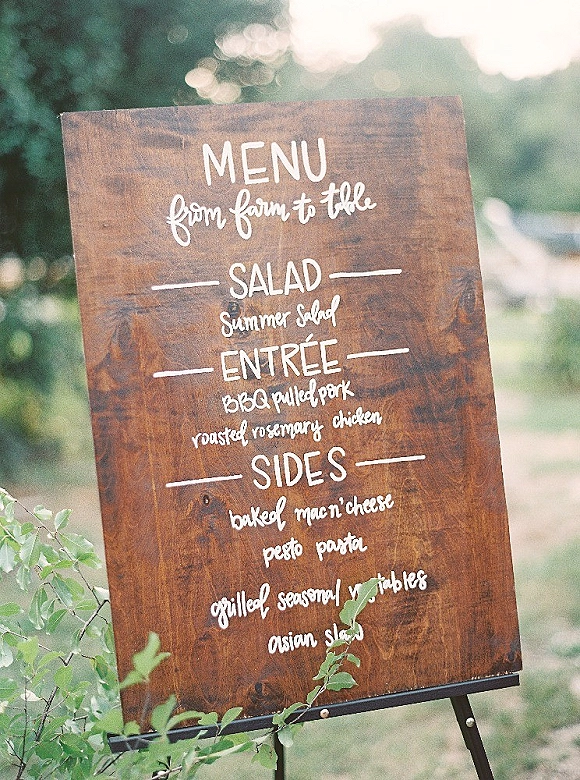 MENU
from farm to table
SALAD
Summer Salad
ENTRÉE
BBQ pulled pork
roasted rosemary chicken
SIDES
baked mac n' cheese
pesto pasta
grilled seasonal
asian slaw